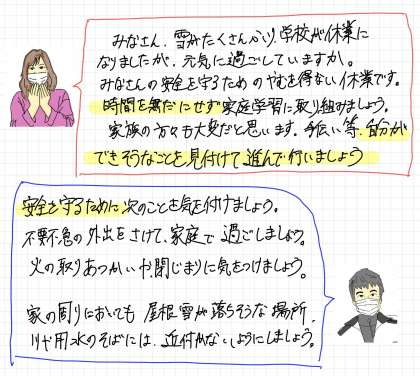 みなさん、雪がたくさんふり、学校が休業に
なりましたが、元気に過ごしていますか。
みなさんの安全を守るためのやむを得ない休業です。
時間を無だにせず家庭学習に取り組みましょう。
家族の方々も大変だと思います。手伝い等、自分が
できそうなことを見付けて進んで行いましょう
安全を守るために次のことを気を付けましょう。
不要不急の外出をさけて、家庭で過ごしましょう。
火の取りあつかいや、閉じまりに気をつけましょう。
家の周りにおいても屋根雪が落ちそうな場所、
川や用水のそばには、近付かないようにしましょう。